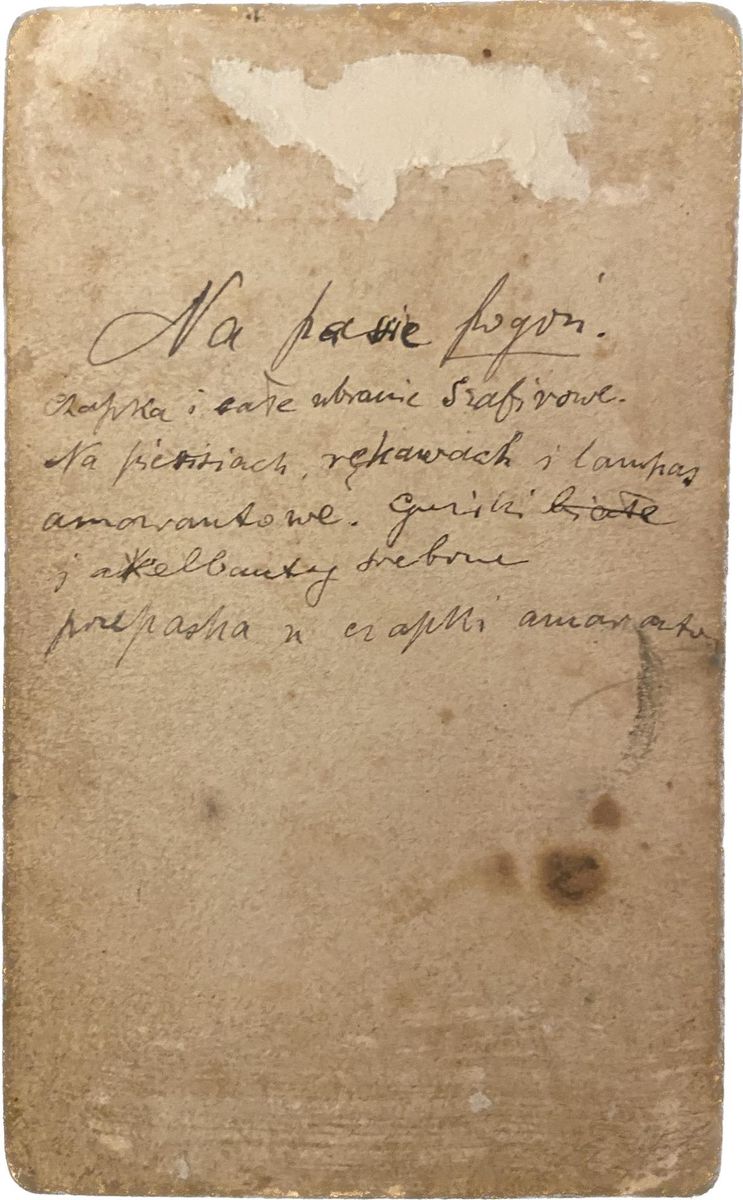 Na pasie pogoń.
czapka i całe ubranie Szafirowe.
Na piersiach, rękawach i lampas
amorantowe. Guziki białe
i akelbanty srebrne
przepaska u czapki amaranto